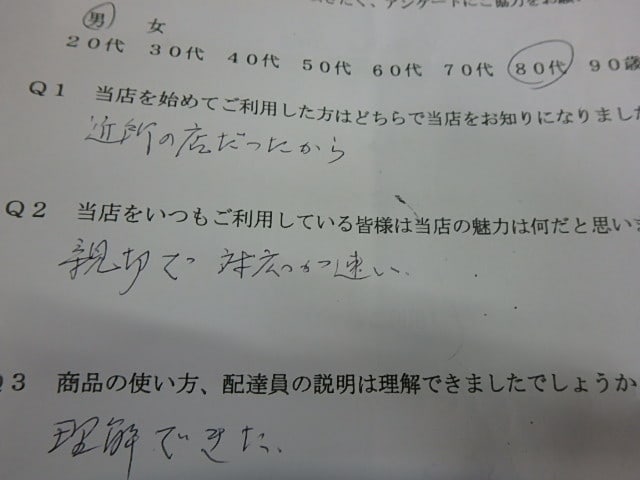 きたく、アンケートにご協力をお願
男 女
20代 30代 40代 50代 60代 70代 80代 90歳
Q1 当店を始めてご利用した方はどちらで当店をお知りになりました
近所の店だったから
Q2 当店をいつもご利用している皆様は当店の魅力は何だと思いま
親切で 対応が速い。
Q3 商品の使い方、配達員の説明は理解できましたでしょうか
理解できた。